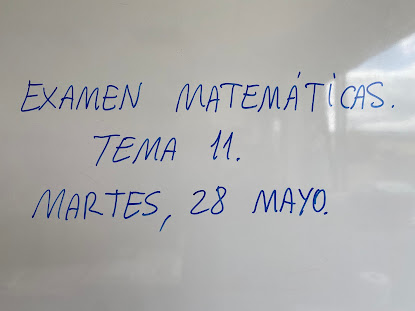 EXAMEN MATEMÁTICAS.
TEMA 11.
MARTES, 28 MAYO.